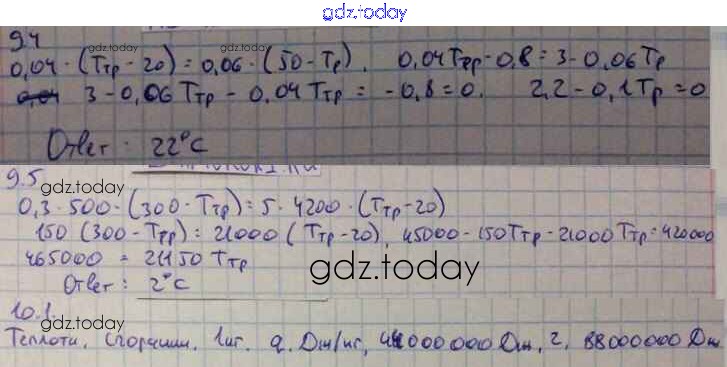 gdz.today
9.4
0,04 · (Tтр - 20) = 0,06 · (50 - Tр). 0,04Tтр - 0,8 = 3 - 0,06Tр
0,04 3 - 0,06Tтр - 0,04Tтр = - 0,8 = 0. 2,2 - 0,1Tр = 0
Ответ: 22°C
9.5
gdz.today
0,3 · 500 · (300 - Tтр) = 5 · 4200 · (Tтр - 20)
150 (300 - Tтр) = 21000 (Tтр - 20), 45000 - 150Tтр - 21000Tтр = 420000
465000 = 21150 Tтр
gdz.today
Ответ: 2°C
10.1.
gdz.today
Теплоти. Сгорании. 1кг. q. Дж/кг, 44000000 Дж. 2, 88000000 Дж.